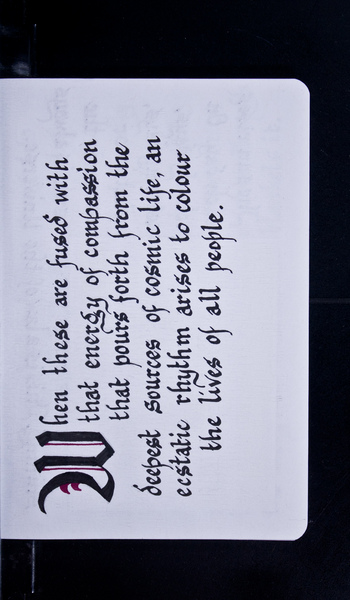 When these are fused with
that energy of compassion
that pours forth from the
deepest sources of cosmic life, an
ecstatic rhythm arises to colour
the lives of all people.